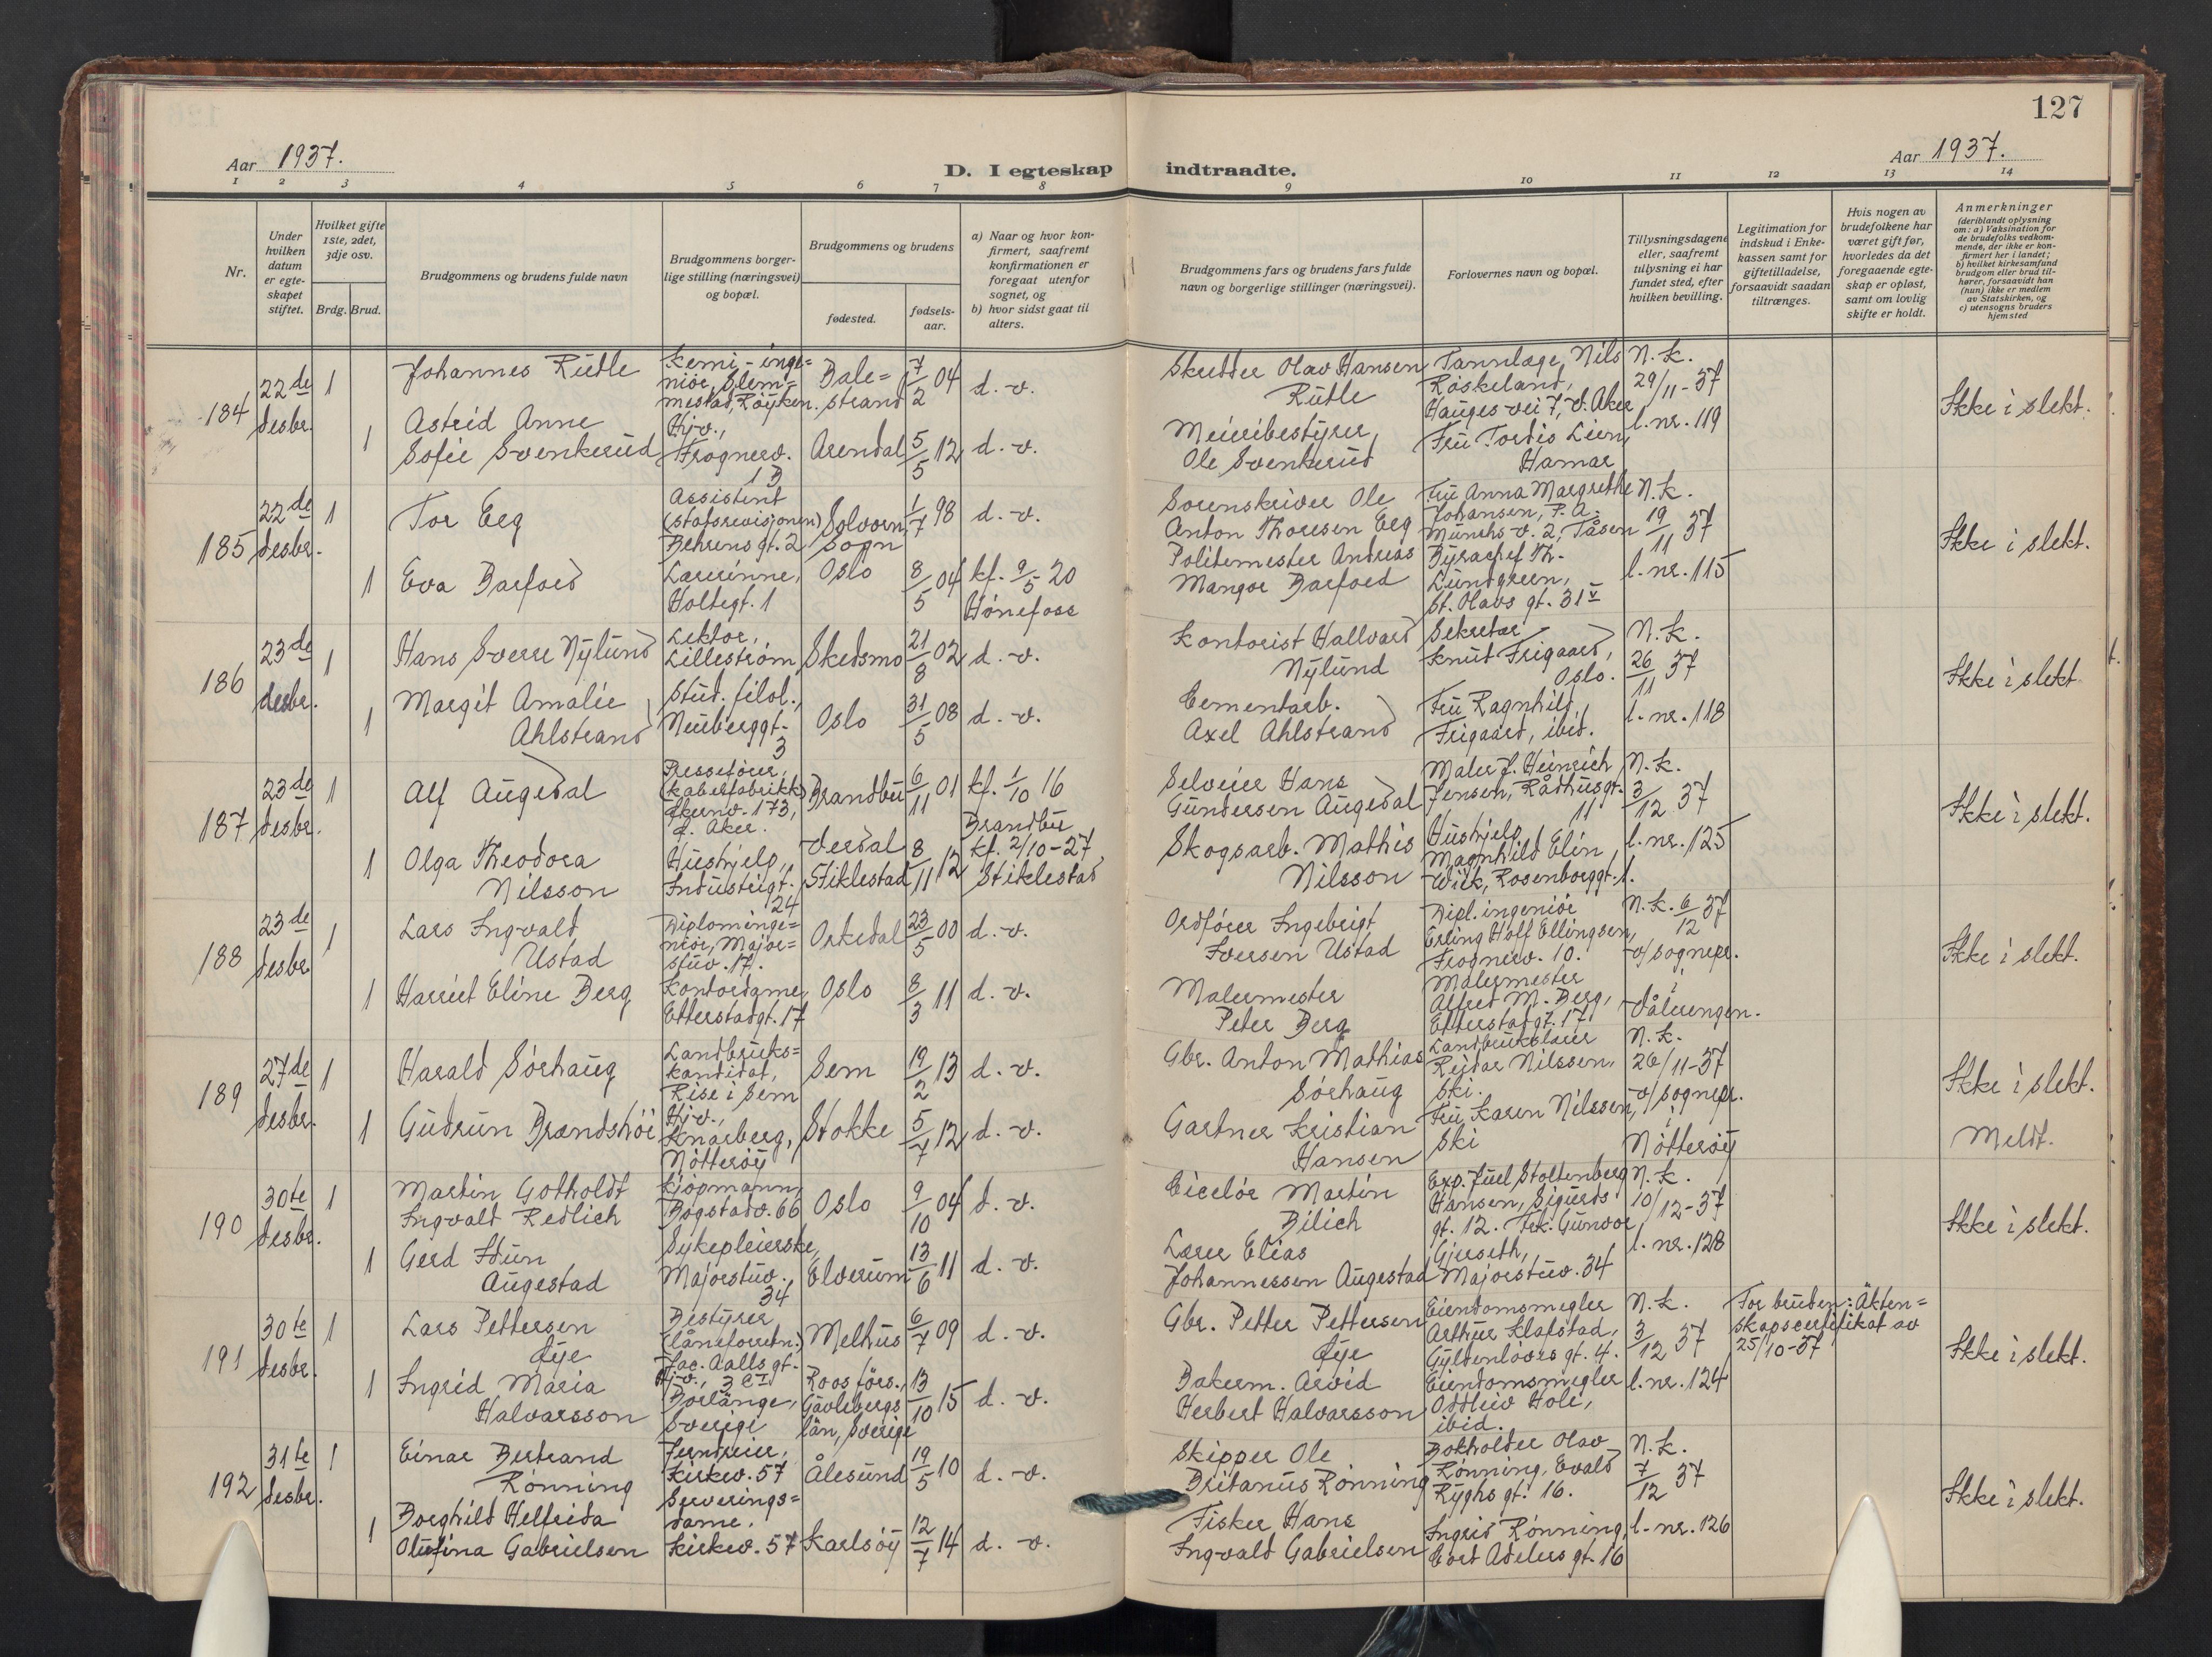 127
Aar 1937.
D. I egteskap indtraadte.
Aar 1937.
1 2 3 4 5 6 7 8 9 10 11 12 13 14
Nr.
Under hvilken datum er egte-skapet stiftet.
Hvilket gifte 1ste, 2det, 3dje osv.
Brdg. Brud.
Brudgommens og brudens fulde navn
Brudgommens borger-lige stilling (næringsvei) og bopæl.
Brudgommens og brudens
fødested.
fødsels-aar.
a) Naar og hvor kon-firmert, saafremt konfirmationen er foregaat utenfor sognet, og
b) hvor sidst gaat til alters.
Brudgommens fars og brudens fars fulde navn og borgerlige stillinger (næringsvei).
Forlovernes navn og bopæl.
Tillysningsdagene eller, saafremt tillysning ei har fundet sted, efter hvilken bevilling.
Legitimation for indskud i Enke-kassen samt for giftetilladelse, forsaavidt saadan tiltrænges.
Hvis nogen av brudefolkene har været gift før, hvorledes da det foregaaende egte-skap er opløst, samt om lovlig skifte er holdt.
Anmerkninger (deriblandt oplysning om: a) Vaksination for de brudefolks vedkom-mende, der ikke er kon-firmert her i landet; b) hvilket kirkesamfund brudgom eller brud til-hører, forsaavidt han (hun) ikke er medlem av Statskirken, og c) utensogns bruders hjemsted
184
22de desbr.
1
Johannes Rutle
Kemi-inge=
niør, Slem=
mestad, Røyken.
Bale=
strand
7/2 04
d. v.
Skredder Olav Hansen
Rutle
Tannlæge Nils
Røskeland,
Hauges vei 7, V. Aker
N. k.
29/11-37
l. nr. 119
Ikke i slekt.
1
Astrid Anne
Sofie Svenkerud
Hjv.,
Frognerv.
1 B
Arendal
5/5 12
d. v.
Meieribestyrer
Ole Svenkerud
Fru Tordis Lien,
Hamar
185
22de desbr.
1
Tor Eeg
Assistent
(statsrevisjonen)
Behrens gt. 2
Solvorn,
Sogn
1/7 98
d. v.
Sorenskriver Ole
Anton Thoresen Eeg
Fru Anna Margrethe
Johansen, P. A.
Munchs v. 2, Tåsen
N. k.
19/11 37
l. nr. 115
Ikke i slekt.
1
Eva Barfoed
Lærerinne,
Holtegt. 1
Oslo
8/5 04
kf. 9/5 20
Hønefoss
Politimester Andreas
Mangor Barfoed
Byråchef Th.
Lundgreen,
St. Olavs gt. 31 V
186
23de desbr.
1
Hans Sverre Nylund
Lektor,
Lillestrøm
Skedsmo
21/8 02
d. v.
Kontorist Hallvard
Nylund
Sekretær
Knut Frigaard,
Oslo.
N. k.
26/11 37
l. nr. 118
Ikke i slekt
1
Margit Amalie
Ahlstrand
Stud. filol.,
Neuberggt.
3
Oslo
31/5 08
d. v.
Cementarb.
Axel Ahlstrand
Fru Ragnhild
Frigaard, ibid.
187
23de desbr.
1
Alf Augedal
Pressefører,
(kabelfabrikk)
Akersv. 173,
Ø. Aker.
Brandbu
6/11 01
kf. 1/10 16
Brandbu
Selveier Hans
Gundersen Augedal
Maler J. Heinrich
Jensen, Rådhusgt.
11
N. k.
3/12 37
l. nr. 125
Ikke i slekt.
1
Olga Theodora
Nilsson
Hushjelp,
Industrigt.
24
Verdal
Stiklestad
8/11 12
kf. 2/10-27
Stiklestad
Skogsarb. Mathis
Nilsson
Hushjelp
Magnhild Elin
Wiik, Rosenborggt. 1.
188
23de desbr
1
Lars Ingvald
Ustad
Diplominge=
niør, Major=
stuv. 17.
Orkedal
23/5 00
d. v.
Ordfører Ingebrigt
Iversen Ustad
Dipl. ingeniør
Erling Holf Ellingsen,
Frognerv. 10.
N. k. 6/12 37
v/ sognepr.
i
Vålerengen.
Ikke i slekt.
1
Harriet Eline Berg
Kontordame,
Etterstadgt. 17
Oslo
8/3 11
d. v.
Malermester
Peter Berg
Malermester
Alfred M. Berg,
Etterstadgt. 17
189
27de desbr.
1
Harald Sørhaug
Landbruks=
kandidat,
Rise i Sem
Sem
19/2 13
d. v.
Gbr. Anton Mathias
Sørhaug
Landbrukslærer
Reidar Nilssen,
Ski.
N. k.
26/11-37
v/ sognepr.
i
Nøtterøy
Ikke i slekt.
Meldt.
1
Gudrun Brandshøi
Hjv.,
Knarberg,
Nøtterøy
Stokke
5/7 12
d. v.
Gartner Kristian
Hansen
Fru Karen Nilssen,
Ski
190
30te desbr.
1
Martin Gotholdt
Ingvald Redlich
Kjøpmann,
Bogstadv. 66
Oslo
9/10 04
d. v.
Ciselør Martin
Bilich
Exp. Juel Stoltenberg
Hansen, Sigurds
gt. 12. Frk. Gunvor
N. k.
10/12-37
l. nr. 128
Ikke i slekt.
1
Gerd Idun
Augestad
Sykepleierske,
Majorstuv.
34
Elverum
13/6 11
d. v.
Lærer Elias
Johannessen Augestad
Gjerseth,
Majorstuv. 34
191
30te desbr.
1
Lars Pettersen
Øye
Bestyrer
(låneforretn.)
Jac. Aalls gt.
3 C I
Melhus
6/7 09
d. v.
Gbr. Petter Pettersen
Øye
Eiendomsmegler
Arthur Klafstad,
Gyldenløves gt. 4.
N. k.
3/12 37
l. nr. 124
For bruden: Äkten=
skapscertifikat av
25/10-37
Ikke i slekt.
1
Ingrid Maria
Halvarsson
Hjv.,
Borlänge,
Sverige
Roos förs.,
Gävleborgs
län, Sverige
13/10 15
d. v.
Bakerm. Arvid
Herbert Halvarsson
Eiendomsmegler
Oddleiv Hole,
ibid.
192
31te desbr.
1
Einar Bertrand
Rønning
Jerndreier,
Kirkev. 57
Ålesund
19/5 10
d. v.
Skipper Ole
Britanus Rønning
Bokholder Olav
Rønning, Evald
Ryghs gt. 16.
N. k.
7/12 37
l. nr. 126
Ikke i slekt.
1
Borghild Helfrida
Olufina Gabrielsen
Serverings=
dame.
Kirkev. 57
Karlsøy
12/7 14
d. v.
Fisker Hans
Ingvald Gabrielsen
Ingrid Rønning,
Cort Adelers gt. 16